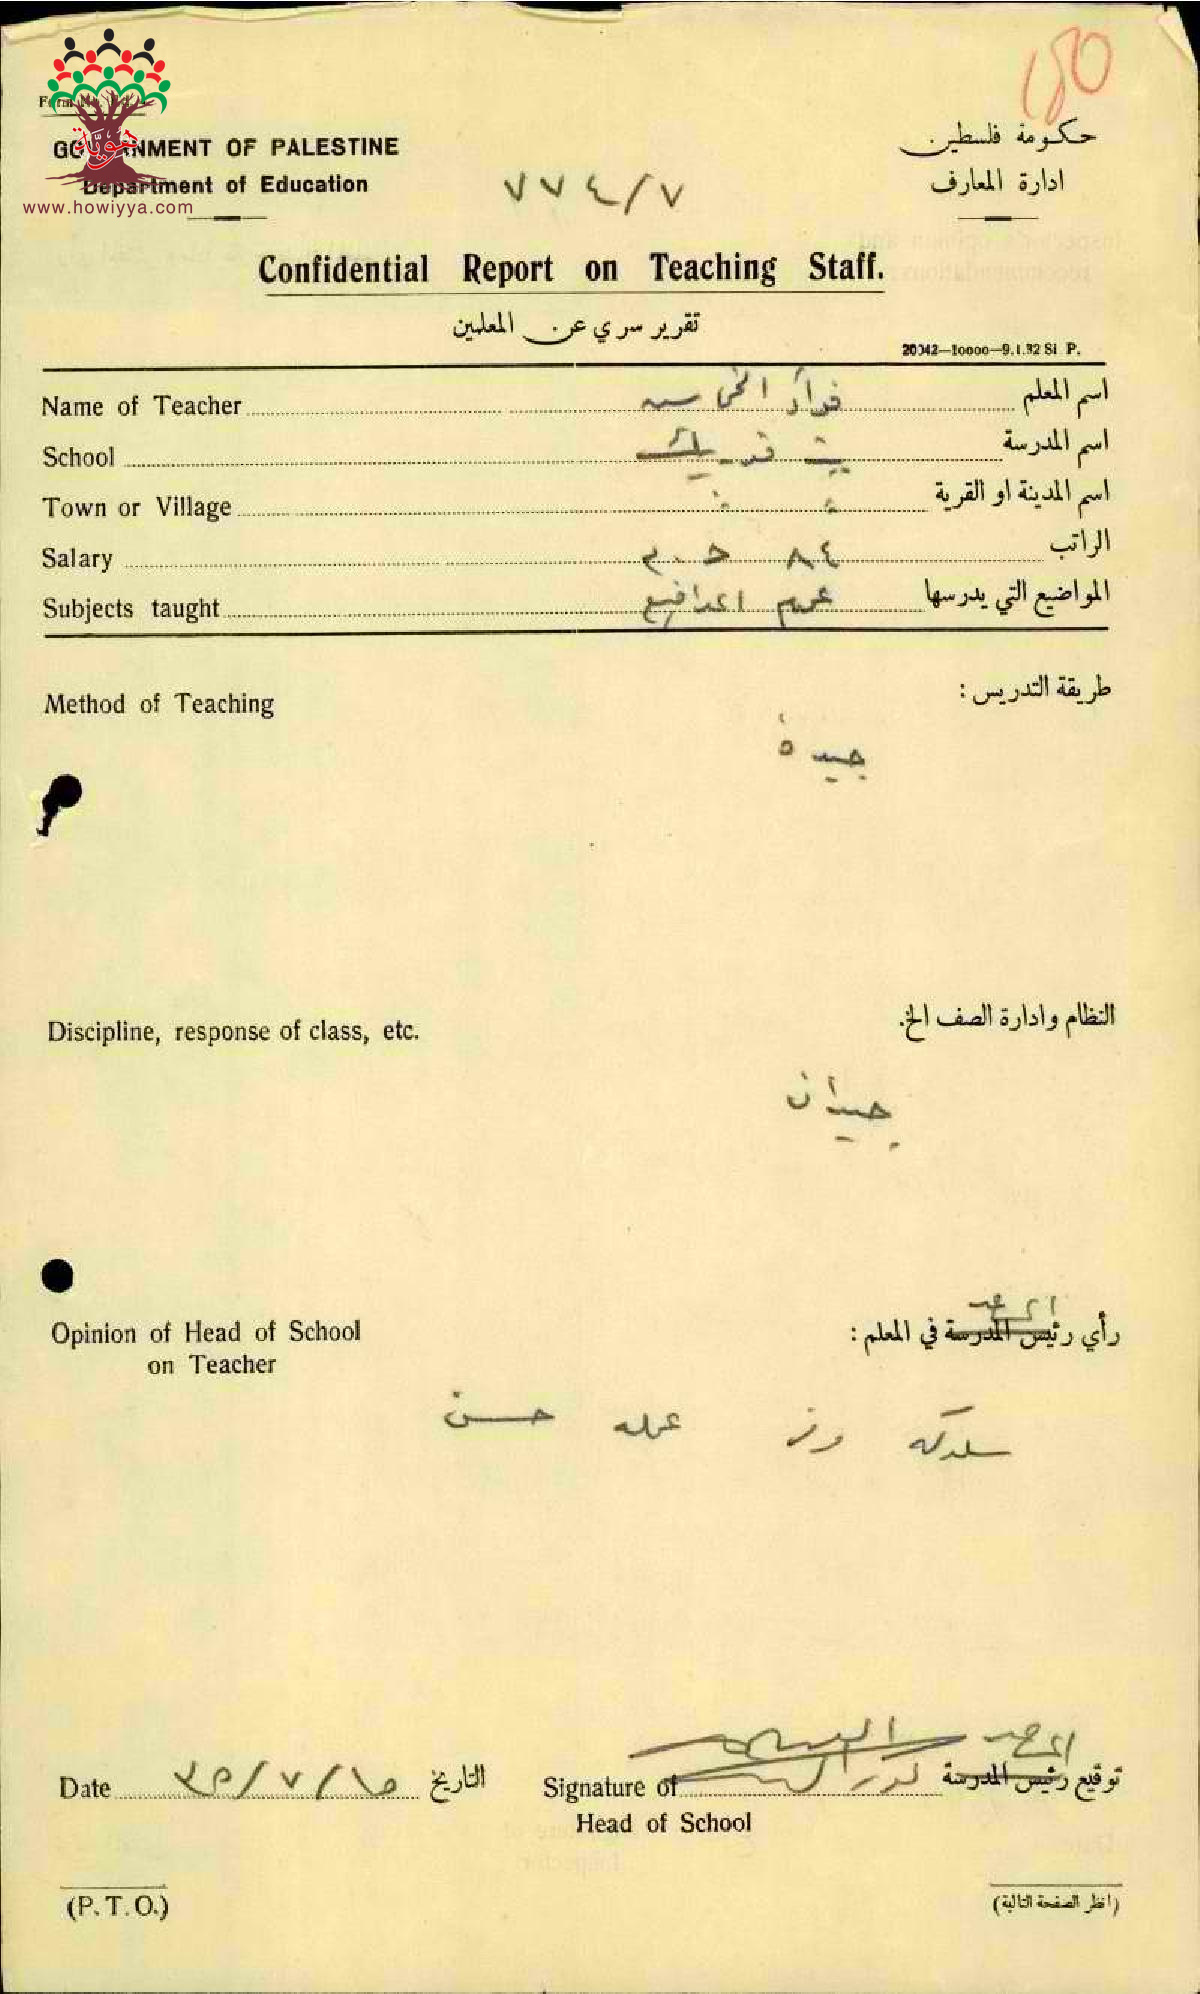 150
Form No.
هويّة
www.howiyya.com
GOVERNMENT OF PALESTINE
Department of Education
٧٧٤/٧
حكومة فلسطين
ادارة المعارف
Confidential Report on Teaching Staff.
تقرير سري عن المعلمين
20042—10000—9.1.32 Si P.
Name of Teacher فؤاد اسم المعلم
School اسم المدرسة
Town or Village اسم المدينة او القرية
Salary ٨٤ الراتب
Subjects taught المواضيع التي يدرسها
Method of Teaching طريقة التدريس :
جيدة
Discipline, response of class, etc. النظام وادارة الصف الخ.
جيدان
Opinion of Head of School رأي رئيس المدرسة في المعلم :
on Teacher
سلوكه عمله حسن
Date ٣٥/٧/١٥ التاريخ Signature of توقيع رئيس المدرسة
Head of School
(P.T.O.) (انظر الصفحة التالية)